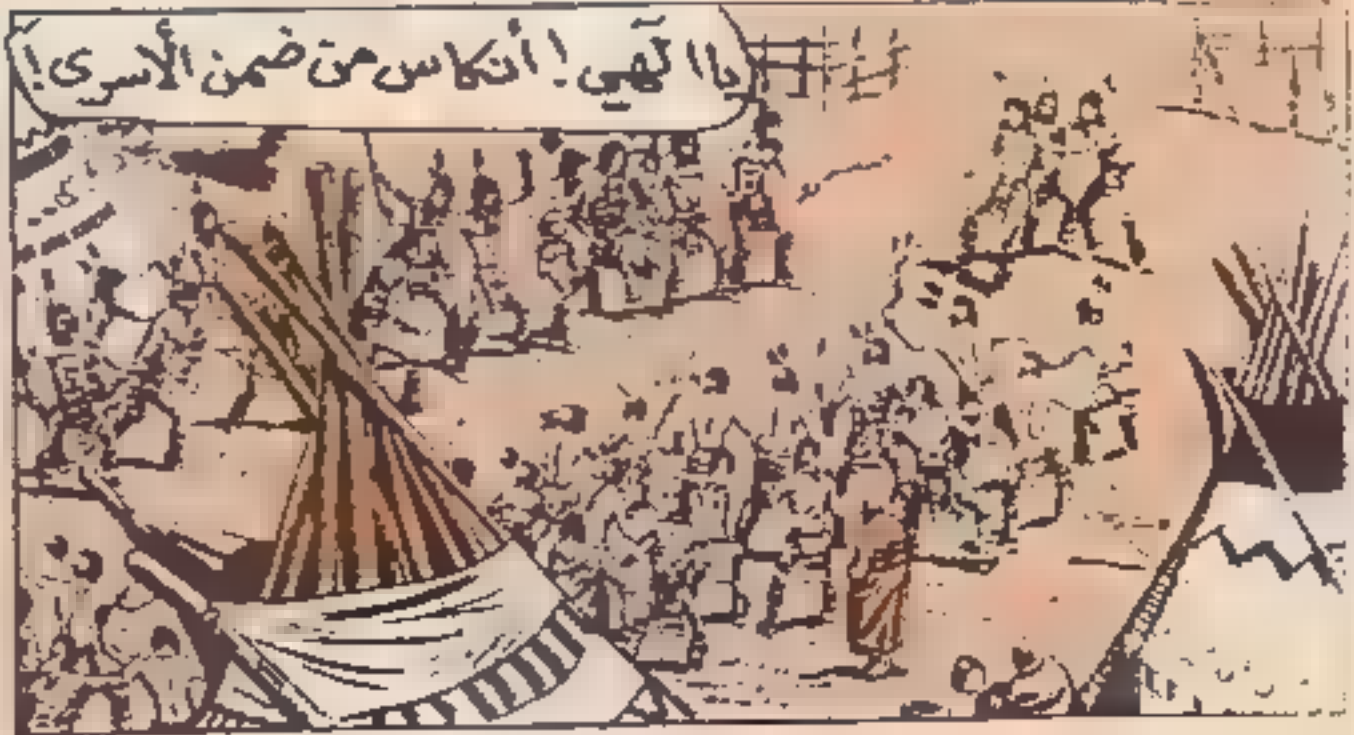 يا الهي ! أنكاس من ضمن الأسرى !